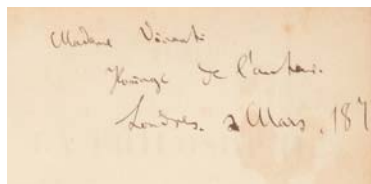 Madame Vivanti
Homage de l'auteur.
Londres. 2 Mars. 187